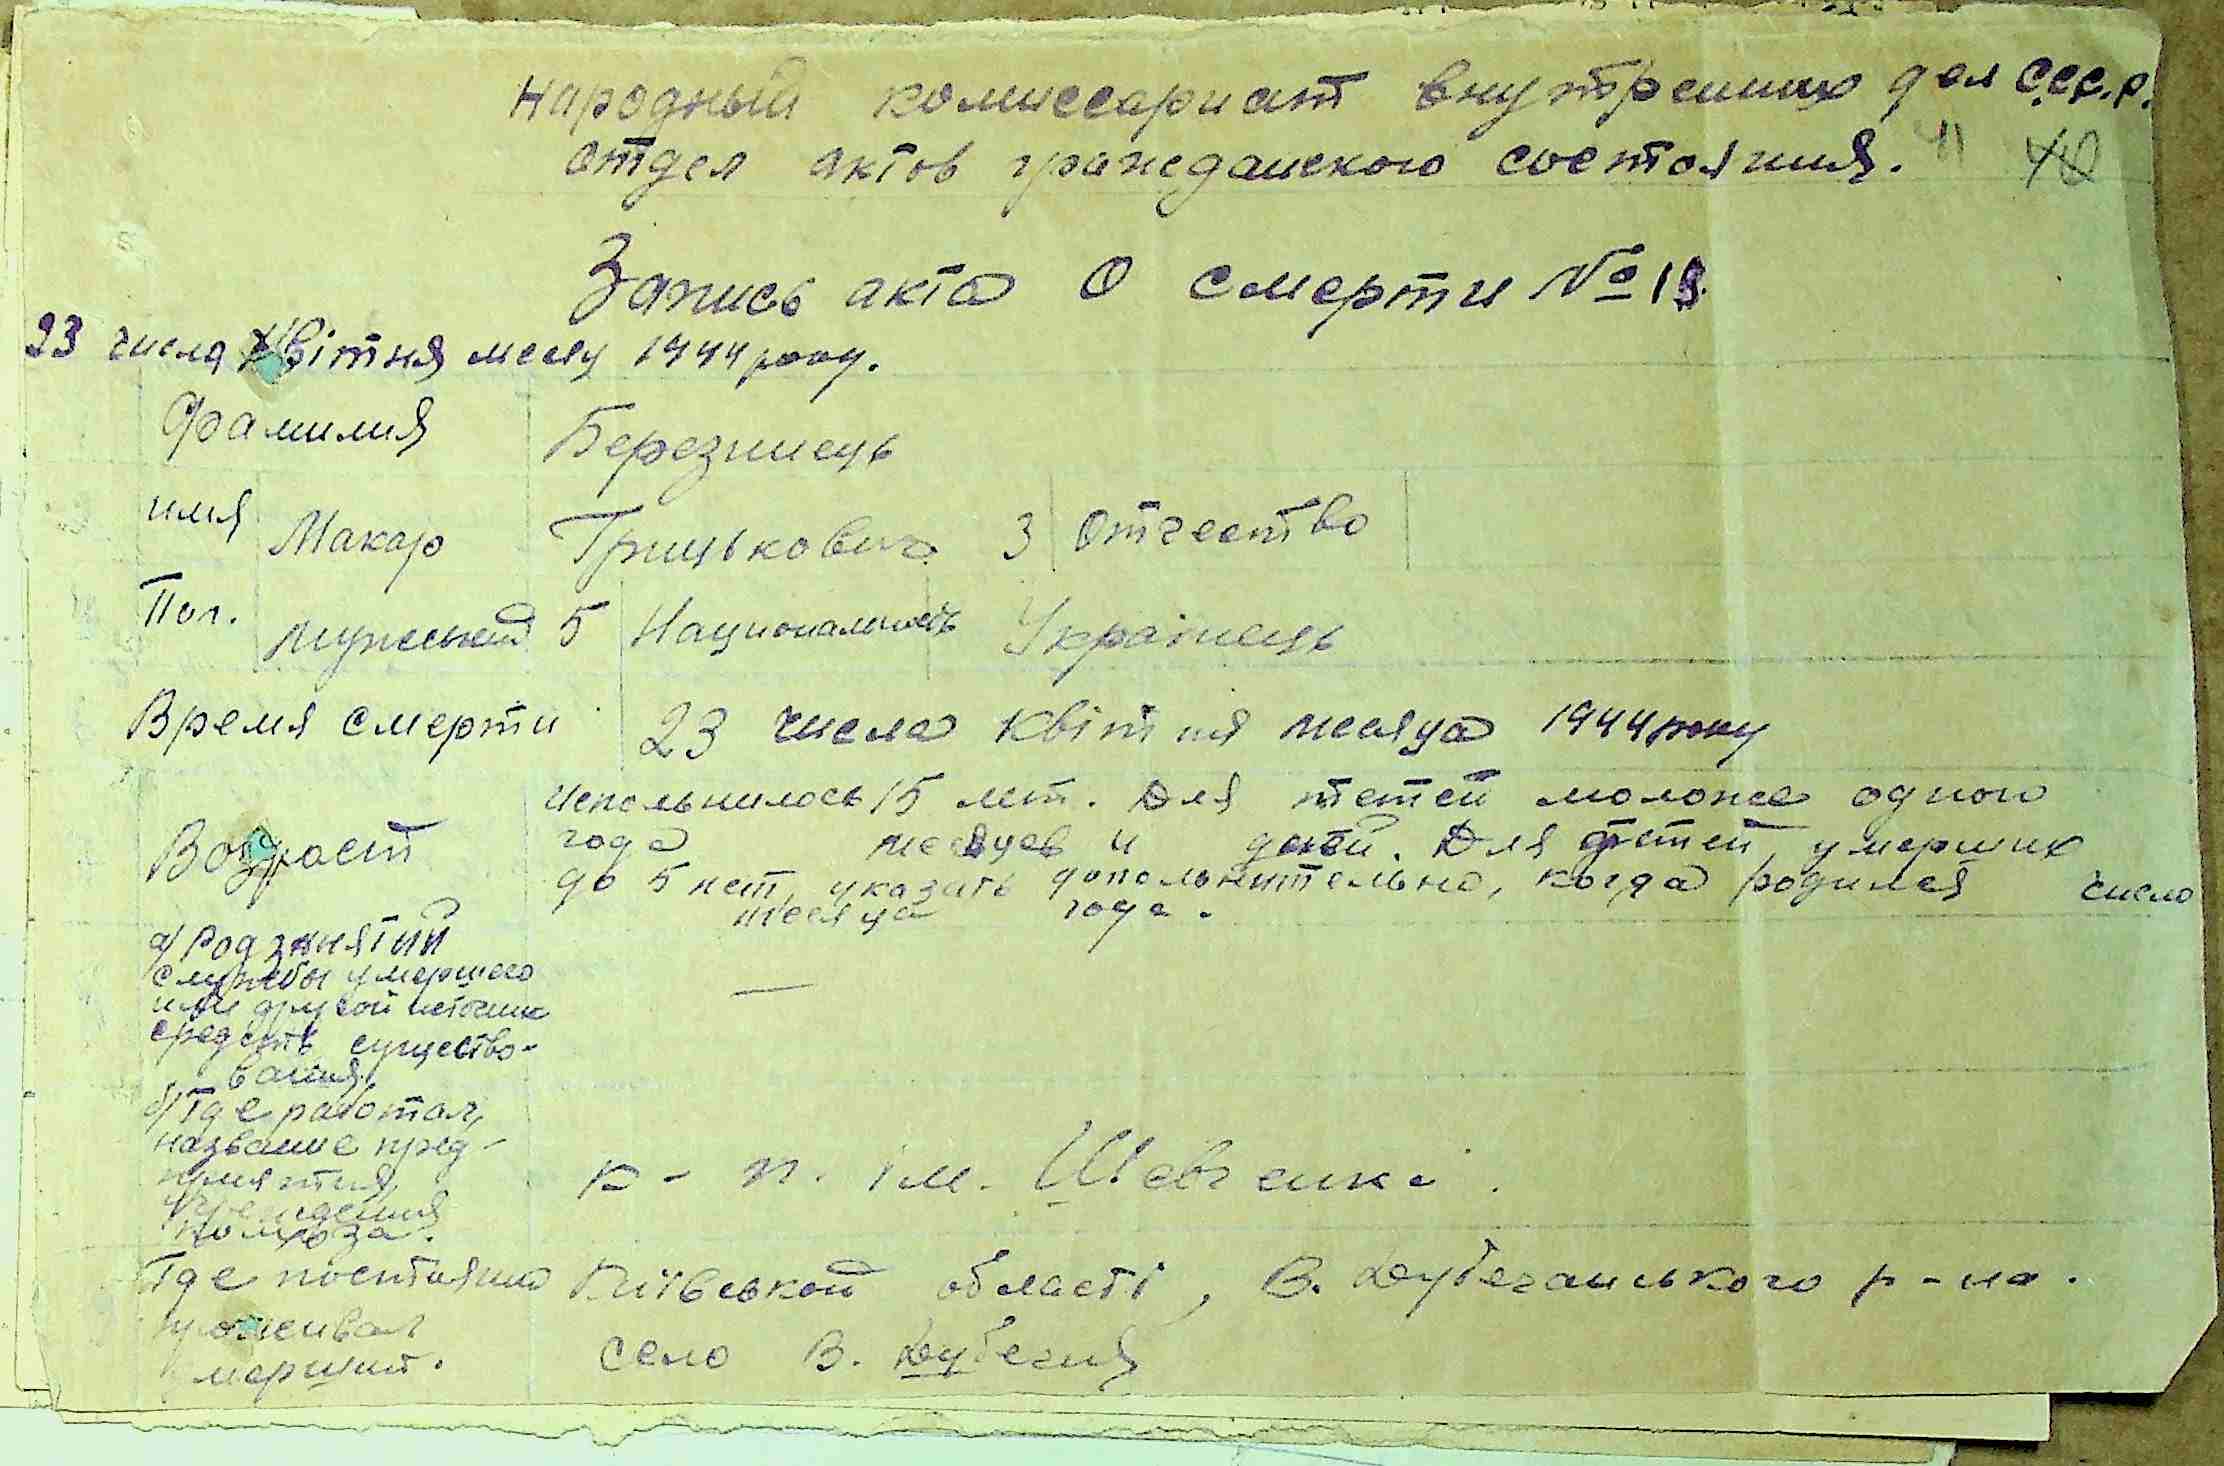 Народный комиссариат внутренних дел С.С.С.Р.
Отдел актов гражданского состояния. 11
Запись акта о смерти № 19.
23 числа Квітня месяц 1944 року.
Фамилия Березинець
имя Макар Грицькович 3 Отчество
Пол. мужеский 5 Национальность Українець
Время смерти 23 числа Квітня месяца 1944 року
Возраст
Испольнилось 15 лет. Для тетей моложе одного
года месяцев и дней. Для детей, умерших
до 5 лет, указать допольнительно, когда родился число
месяца года.
а) Род зянятий
службы умершего
или другой источник
средств существо-
вания. —
б) Где работал,
название пред-
приятия,
учреждения
колхоза. к-п. ім. Шевченка.
Где постояно Київской області, В. Дубечанського р-на.
проживал
умерший. село В. Дубечня